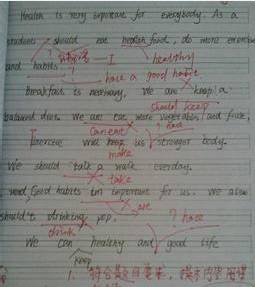 Health is very important for everybody. As a
student, should eat health food, do more exercise
and habits. I healthy
have a good habit
Breakfast is necessary, We are keep a
should keep
balanced diet. We are eat more vegetables and fruit,
can eat ? have
Exercise will keep us stronger body.
make
We should talk a walk everyday.
take
Good habits im important for us. We also
are
should't drinking pop. ? have
drink
We can healthy and good life
keep
1.